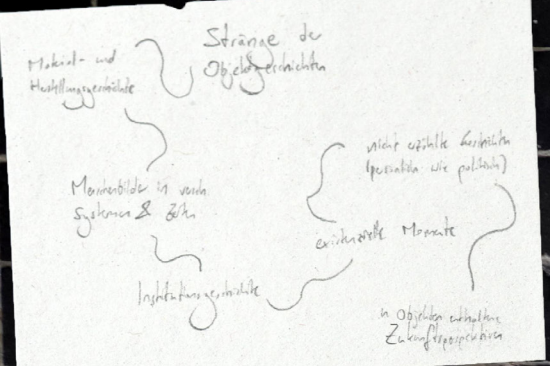 Stränge der
Objektgeschichten
Material- und
Herstellungsgeschichte
Menschenbilder in versch.
Systemen & Zeiten
Institutionsgeschichte
existenzielle Momente
nicht erzählte Geschichten
(persönlich wie politisch)
in Objekten enthaltene
Zukunftsperspektiven